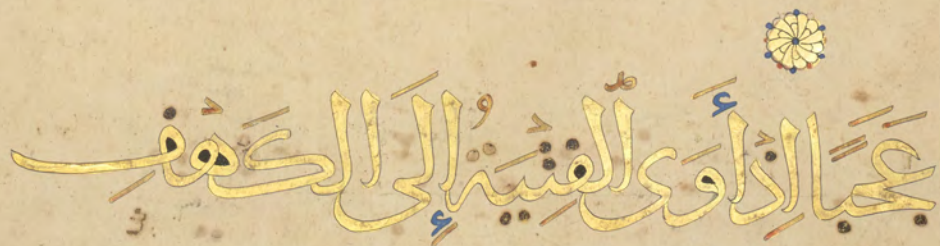 عَجَبًا إِذْ أَوَى ٱلْفِتْيَةُ إِلَى ٱلْكَهْفِ